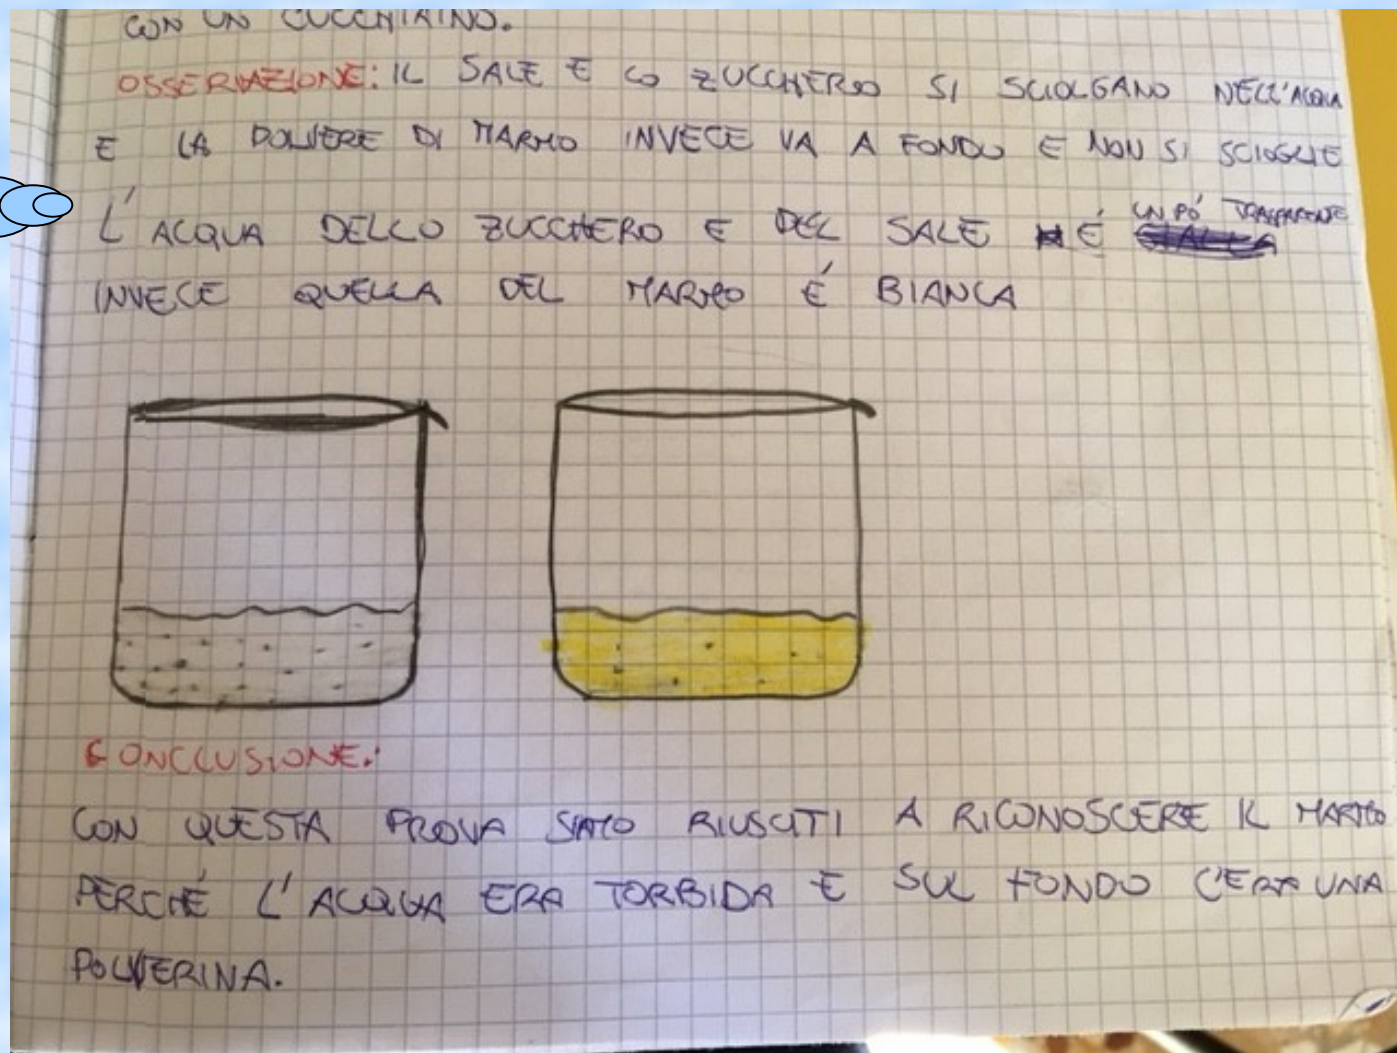 CON UN CUCCHIAINO.
OSSERVAZIONE: IL SALE E LO ZUCCHERO SI SCIOLGANO NELL'ACQUA
E LA POLVERE DI MARMO INVECE VA A FONDO E NON SI SCIOGLIE
L'ACQUA DELLO ZUCCHERO E DEL SALE É UN PÓ TRASPARENTE
INVECE QUELLA DEL MARMO É BIANCA
CONCLUSIONE:
CON QUESTA PROVA SIAMO RIUSCITI A RICONOSCERE IL MARMO
PERCHÉ L'ACQUA ERA TORBIDA E SUL FONDO C'ERA UNA
POLVERINA.